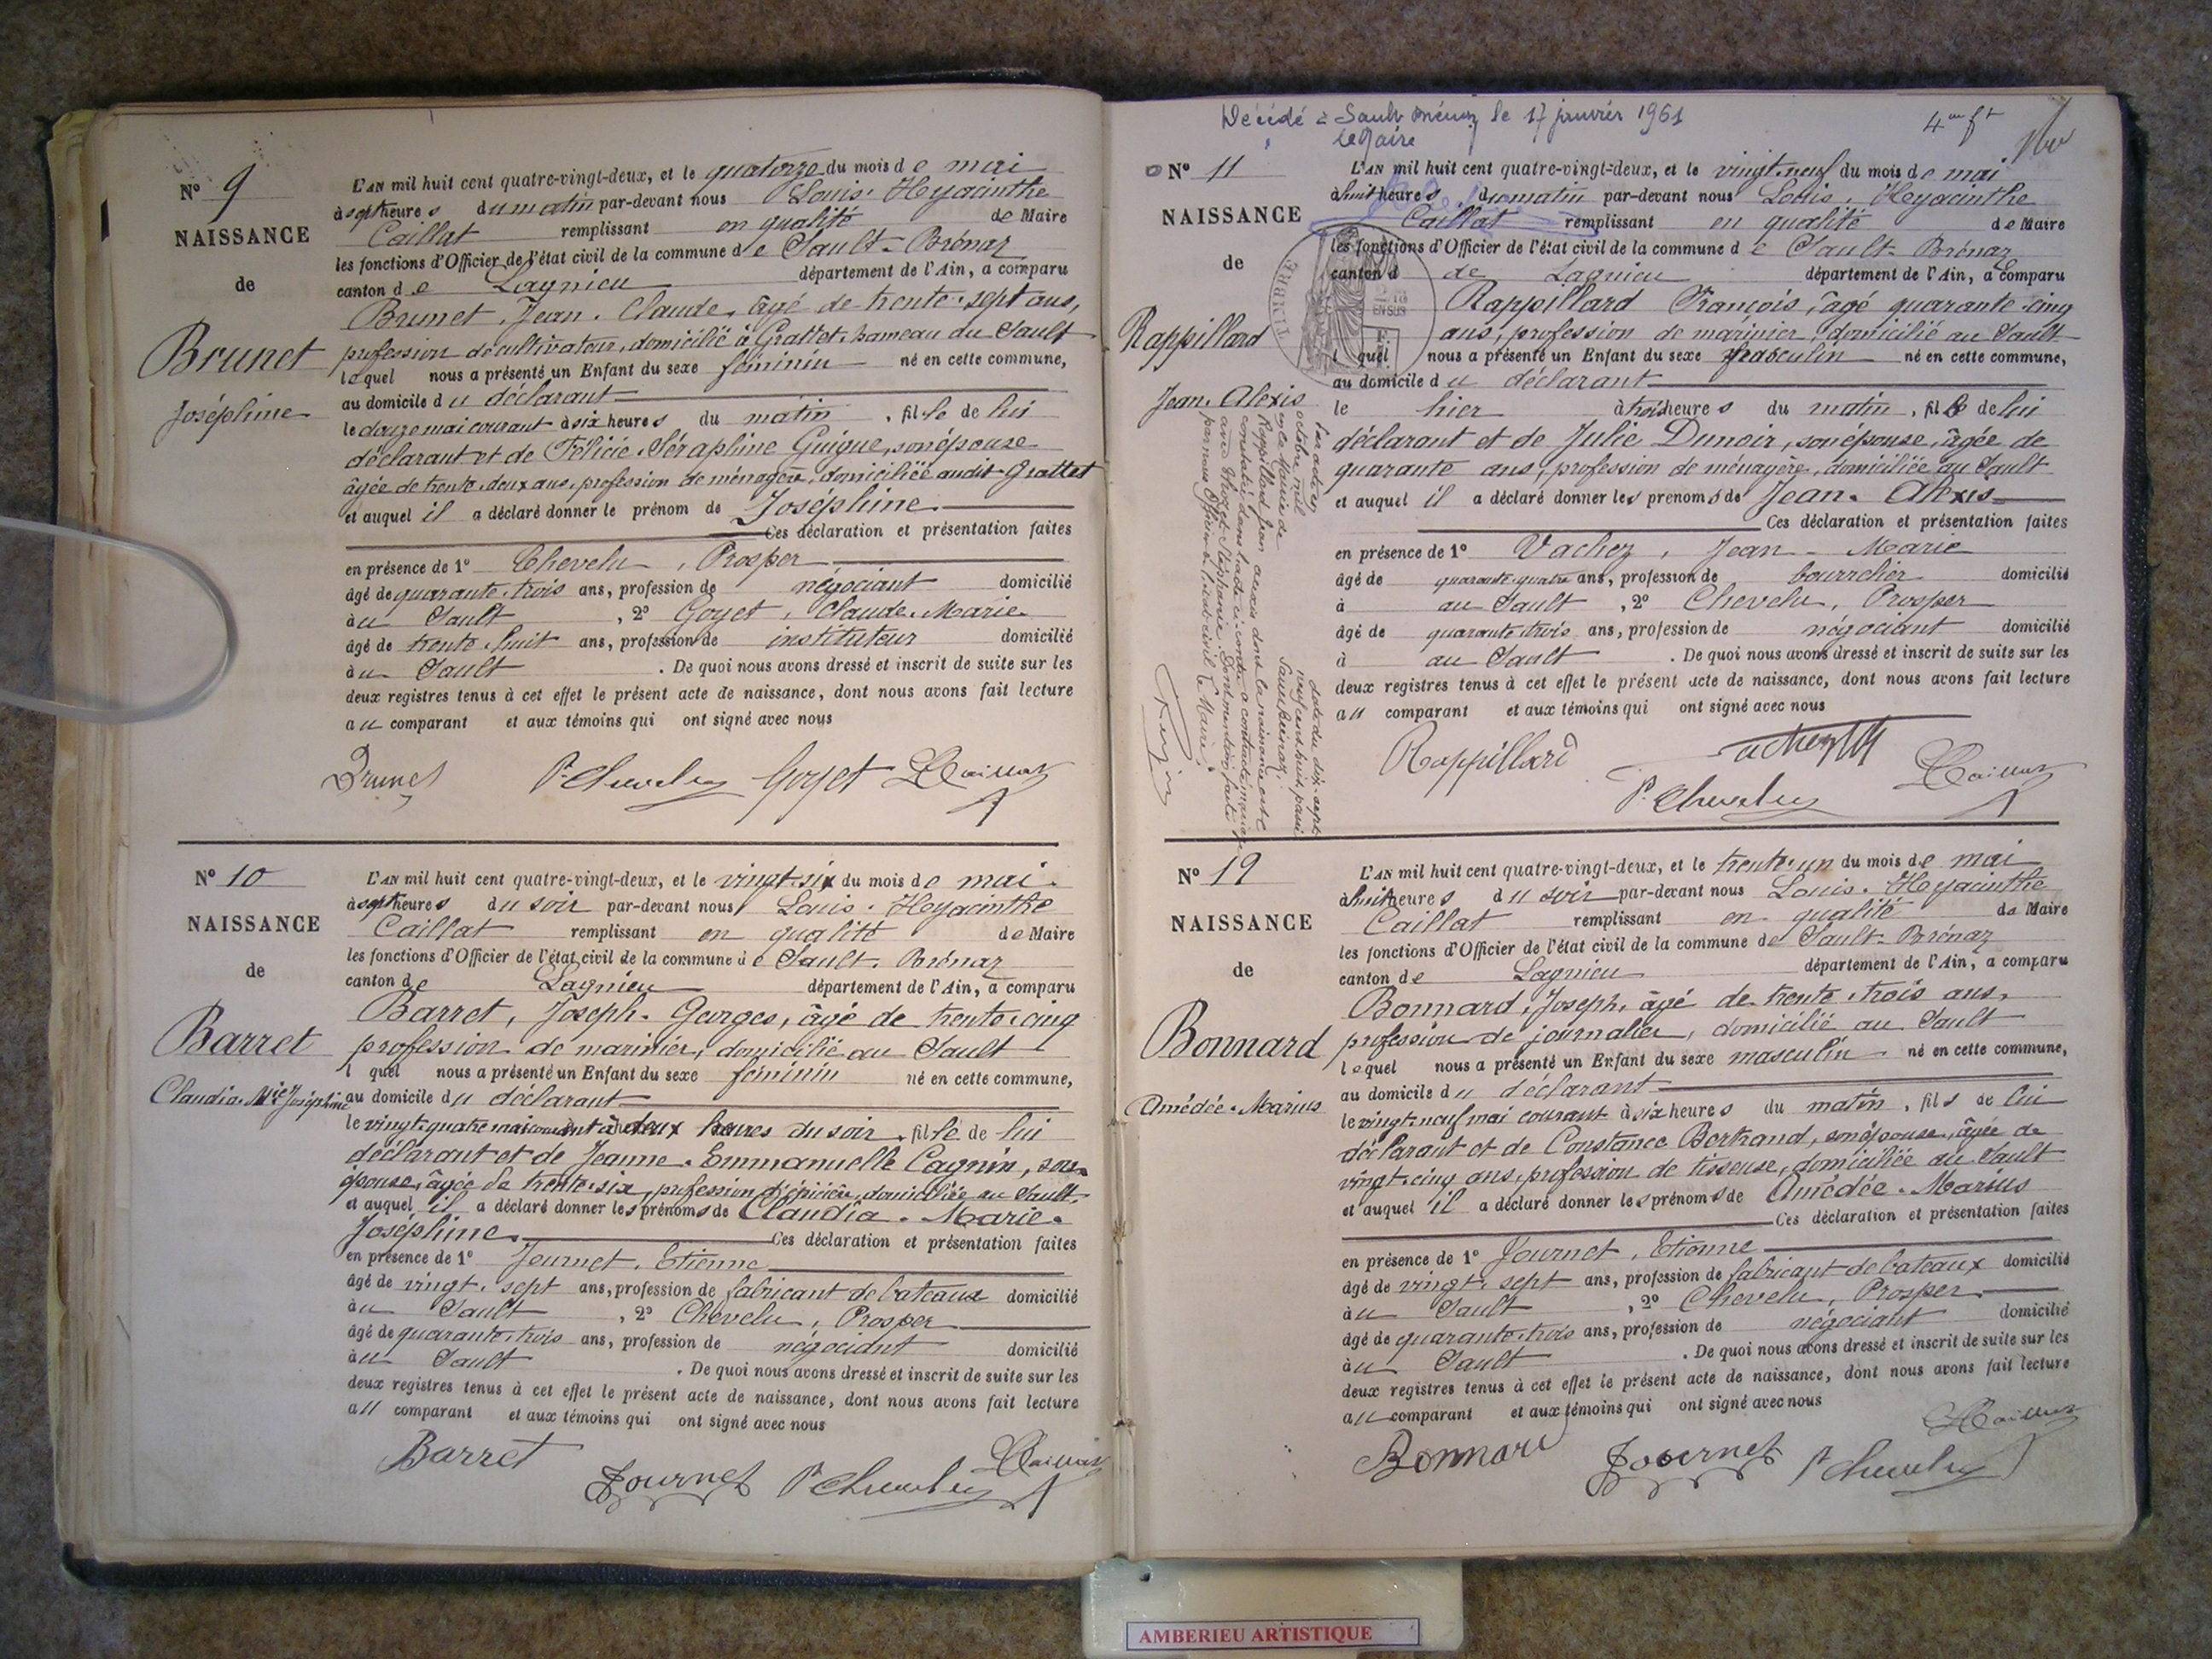 N° 9
NAISSANCE
de
Brunet
Joséphine
L'AN mil huit cent quatre-vingt-deux, et le quatorze du mois de mai
à sept heures du matin par-devant nous Louis Hyacinthe
Caillat remplissant en qualité de Maire
les fonctions d'Officier de l'état civil de la commune de Sault-Brénaz
canton de Lagnieu département de l'Ain, a comparu
Brunet, Jean-Claude, âgé de trente-sept ans,
profession de cultivateur, domicilié à Grattet, hameau du Sault
lequel nous a présenté un Enfant du sexe féminin né en cette commune,
au domicile du déclarant
le douze mai courant à six heures du matin, fille de lui
déclarant et de Félicie Séraphine Guigue, son épouse
âgée de trente-deux ans, profession de ménagère, domiciliée audit Grattet
et auquel il a déclaré donner le prénom de Joséphine
Ces déclaration et présentation faites
en présence de 1° Chevelu, Prosper
âgé de quarante-trois ans, profession de négociant domicilié
au Sault, 2° Goyet, Claude-Marie
âgé de trente-huit ans, profession de instituteur domicilié
au Sault. De quoi nous avons dressé et inscrit de suite sur les
deux registres tenus à cet effet le présent acte de naissance, dont nous avons fait lecture
au comparant et aux témoins qui ont signé avec nous
Brunet P. Chevelu Goyet Caillat
N° 10
NAISSANCE
de
Barret
Claudia Mie Joséphine
L'AN mil huit cent quatre-vingt-deux, et le vingt-six du mois de mai
à sept heures du soir par-devant nous Louis Hyacinthe
Caillat remplissant en qualité de Maire
les fonctions d'Officier de l'état civil de la commune de Sault-Brénaz
canton de Lagnieu département de l'Ain, a comparu
Barret, Joseph-Georges, âgé de trente-cinq
profession de marinier, domicilié au Sault
l quel nous a présenté un Enfant du sexe féminin né en cette commune,
au domicile du déclarant
le vingt-quatre mai courant à deux heures du soir, fille de lui
déclarant et de Jeanne-Emmanuelle Cagnin, son
épouse, âgée de trente-six, profession d'épicière, domiciliée au Sault
et auquel il a déclaré donner les prénoms de Claudia-Marie-
Joséphine Ces déclaration et présentation faites
en présence de 1° Journet, Etienne
âgé de vingt-sept ans, profession de fabricant de bateaux domicilié
au Sault, 2° Chevelu, Prosper
âgé de quarante-trois ans, profession de négociant domicilié
au Sault. De quoi nous avons dressé et inscrit de suite sur les
deux registres tenus à cet effet le présent acte de naissance, dont nous avons fait lecture
au comparant et aux témoins qui ont signé avec nous
Barret Journet P. Chevelu Caillat
Décédé à Sault Brénaz le 17 janvier 1961
le Maire
N° 11
NAISSANCE
de
Rappillard
Jean-Alexis
L'AN mil huit cent quatre-vingt-deux, et le vingt-neuf du mois de mai
à huit heures du matin par-devant nous Louis Hyacinthe
Caillat remplissant en qualité de Maire
les fonctions d'Officier de l'état civil de la commune de Sault-Brénaz
canton d de Lagnieu département de l'Ain, a comparu
Rappillard François, âgé quarante-cinq
ans, profession de marinier, domicilié au Sault
l quel nous a présenté un Enfant du sexe masculin né en cette commune,
au domicile du déclarant
le hier à trois heures du matin, fils de lui
déclarant et de Julie Dunoir, son épouse, âgée de
quarante ans, profession de ménagère, domiciliée au Sault
et auquel il a déclaré donner les prénoms de Jean-Alexis
Ces déclaration et présentation faites
en présence de 1° Vachez, Jean-Marie
âgé de quarante-quatre ans, profession de bourrelier domicilié
à au Sault, 2° Chevelu, Prosper
âgé de quarante-trois ans, profession de négociant domicilié
à au Sault. De quoi nous avons dressé et inscrit de suite sur les
deux registres tenus à cet effet le présent acte de naissance, dont nous avons fait lecture
au comparant et aux témoins qui ont signé avec nous
Par acte en date du dix-sept
octobre mil neuf cent huit, passé
en la Mairie de Sault Brénaz,
Rappillard Jean Alexis dont la naissance est
constatée dans l'acte ci-contre a contracté mariage
avec Stéphanie. Dont mention faite
par nous Officier de l'état civil. Le Maire,
Rappillard P. Chevelu Caillat
N° 12
NAISSANCE
de
Bonnard
Amédée-Marius
L'AN mil huit cent quatre-vingt-deux, et le trente-un du mois de mai
à huit heures du soir par-devant nous Louis Hyacinthe
Caillat remplissant en qualité de Maire
les fonctions d'Officier de l'état civil de la commune de Sault-Brénaz
canton de Lagnieu département de l'Ain, a comparu
Bonnard, Joseph, âgé de trente-trois ans,
profession de journalier, domicilié au Sault
lequel nous a présenté un Enfant du sexe masculin né en cette commune,
au domicile du déclarant
le vingt-neuf mai courant à six heures du matin, fils de lui
déclarant et de Constance Bertrand, son épouse, âgée de
vingt-cinq ans, profession de tisseuse, domiciliée au Sault
et auquel il a déclaré donner les prénoms de Amédée-Marius
Ces déclaration et présentation faites
en présence de 1° Journet, Etienne
âgé de vingt-sept ans, profession de fabricant de bateaux domicilié
au Sault, 2° Chevelu, Prosper
âgé de quarante-trois ans, profession de négociant domicilié
au Sault. De quoi nous avons dressé et inscrit de suite sur les
deux registres tenus à cet effet le présent acte de naissance, dont nous avons fait lecture
au comparant et aux témoins qui ont signé avec nous
Bonnard Journet P. Chevelu Caillat
AMBERIEU ARTISTIQUE